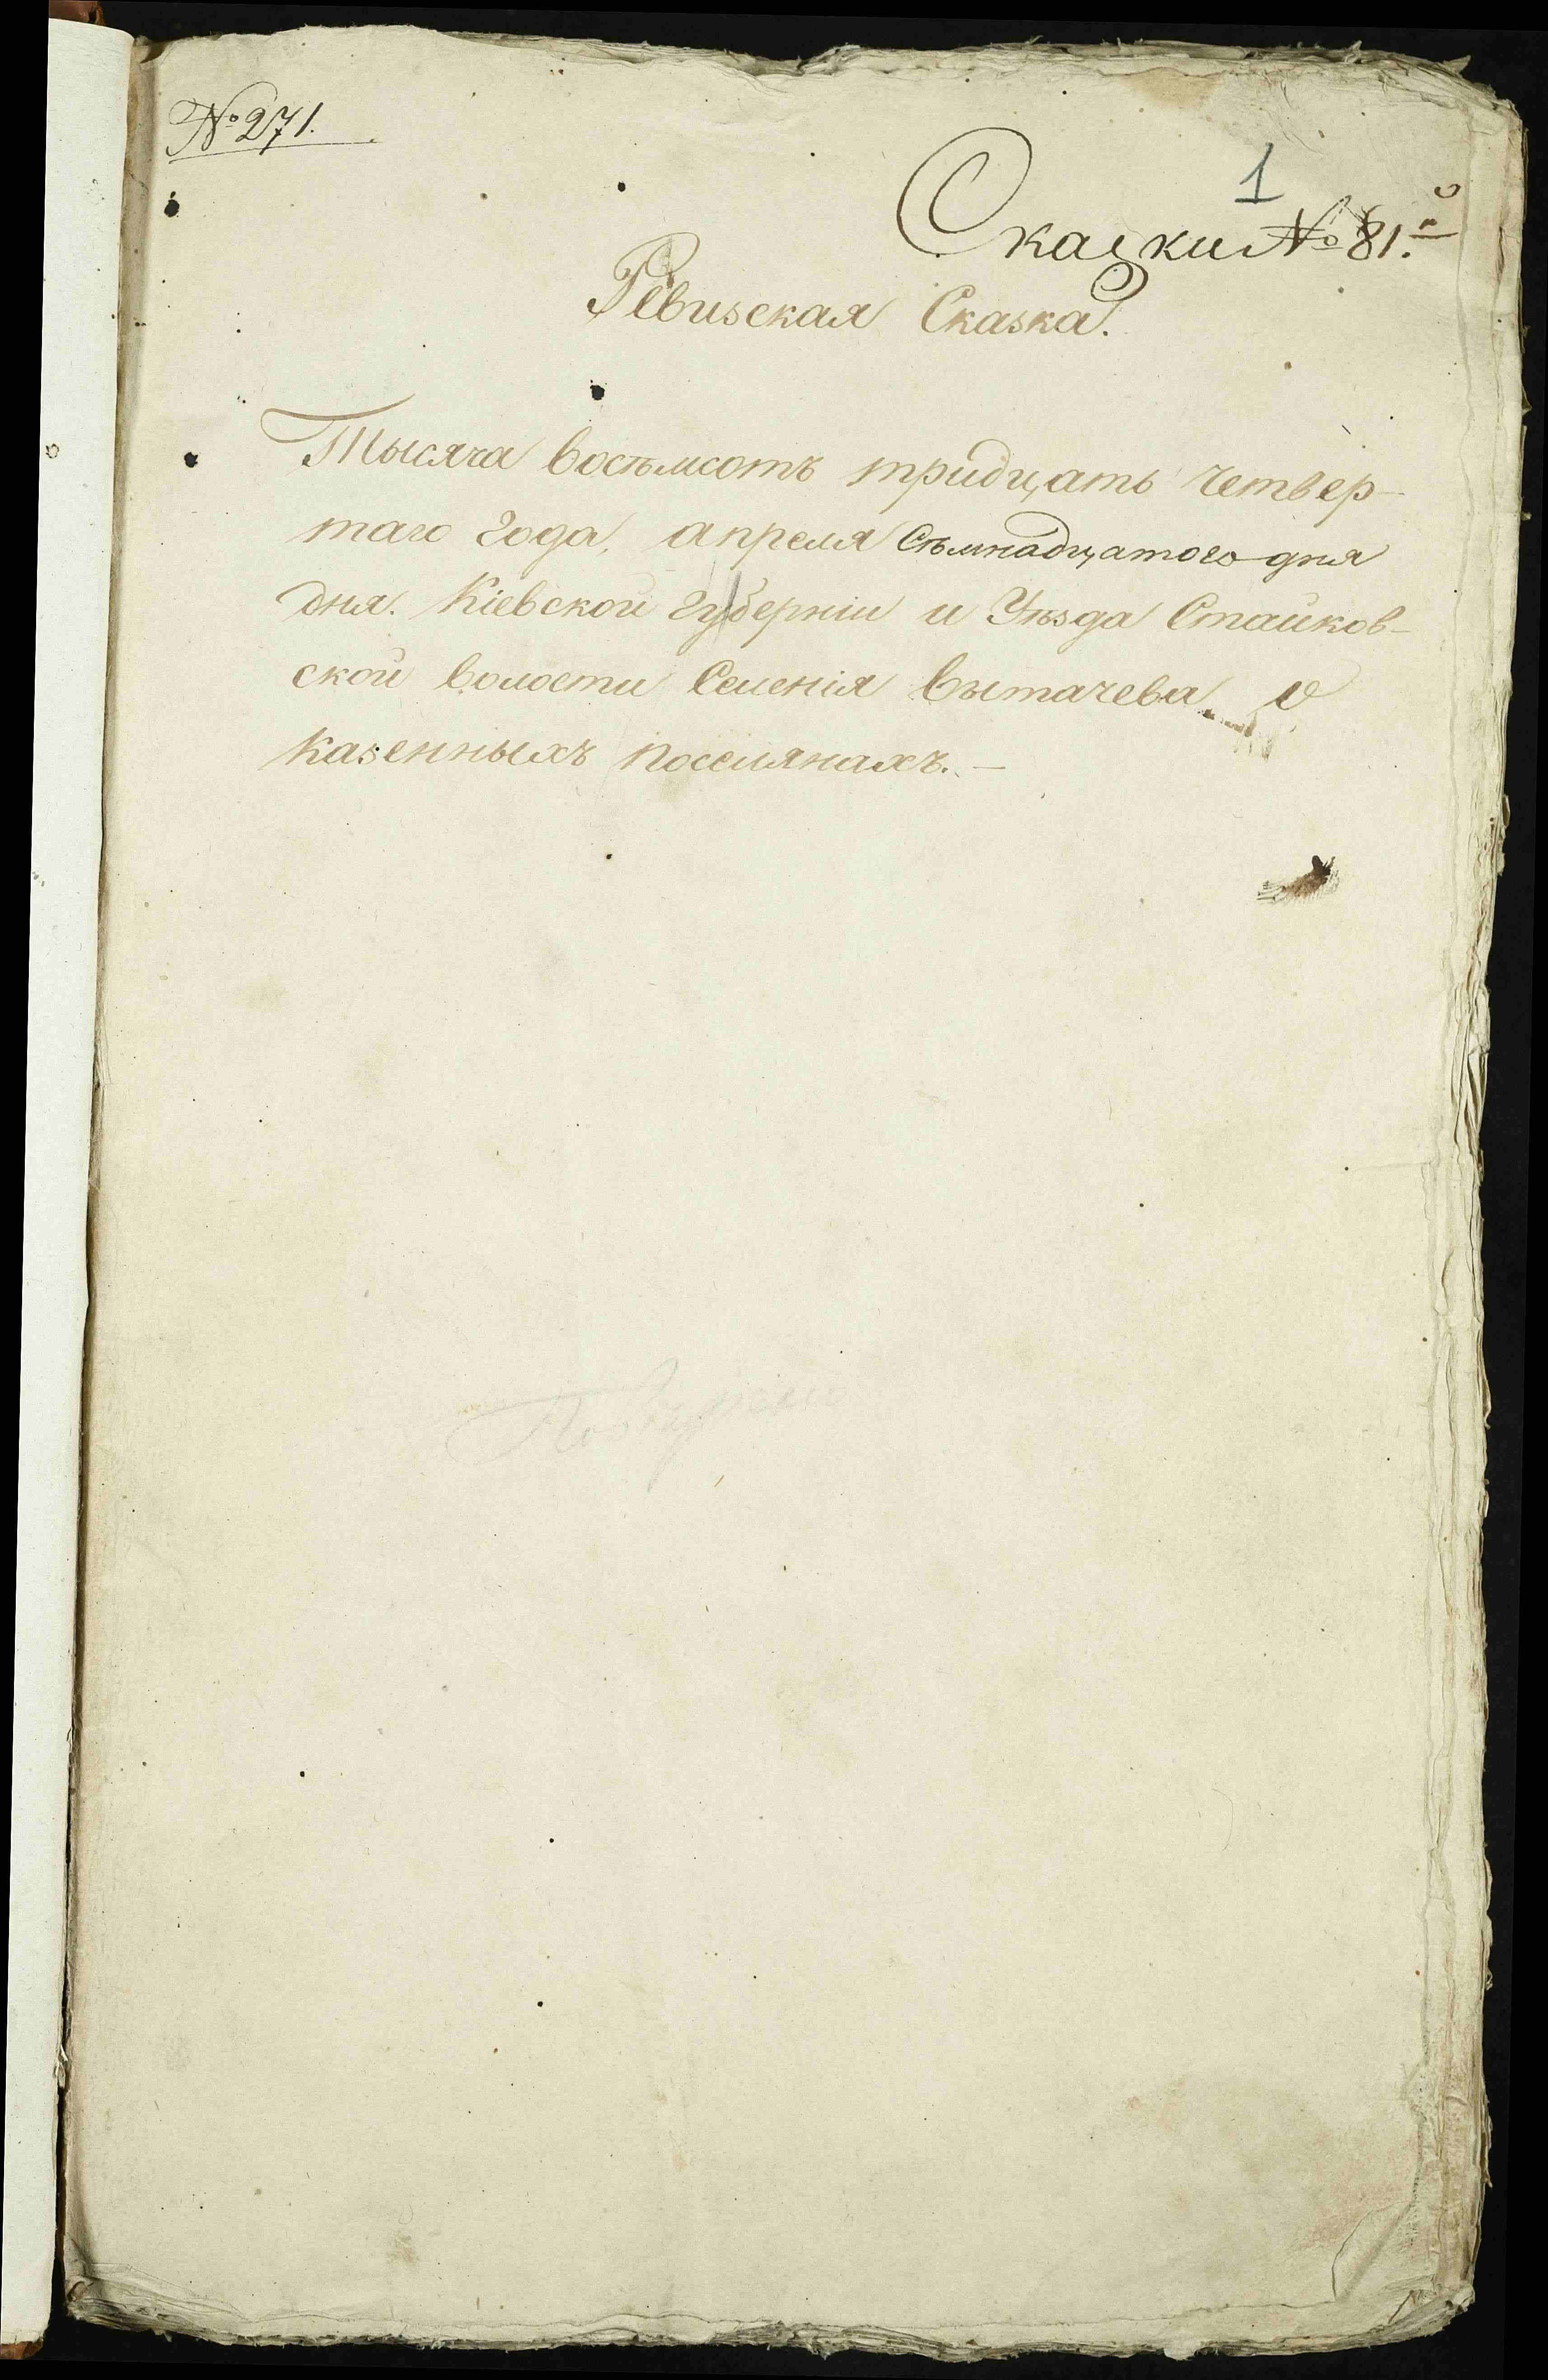 № 271.
1
Сказки № 81.й
Ревизская Сказка.
Тысяча восѣмсотъ тридцать четвер-
таго года, апреля Сѣмнадцатого дня
дня. Кіевской губерніи и Уѣзда Стайков-
ской волости Селенія Вытачева о
казенныхъ поселянахъ. —